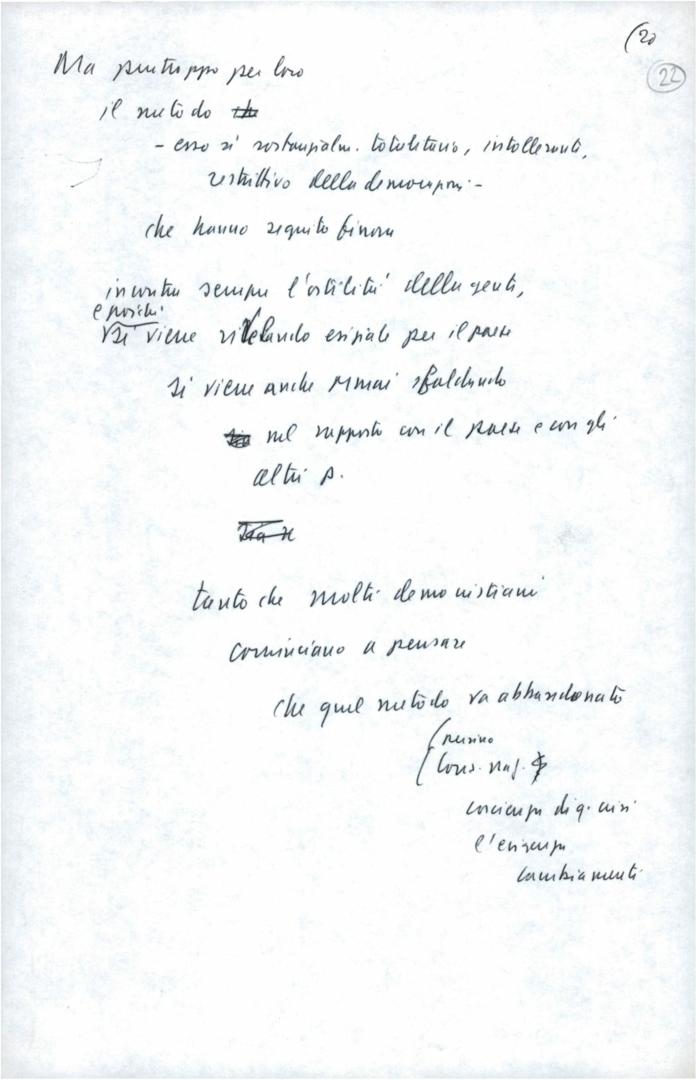 (20
22
Ma purtroppo per loro
il metodo
- esso sì sostanzialm. totalitario, intollerante,
restrittivo della democrazia -
che hanno seguito finora
incontra sempre l'ostilità della gente,
e poiché
si viene rivelando esiziale per il paese
si viene anche ormai sfaldando
nel rapporto con il paese e con gli
altri p.
tanto che molti democristiani
cominciano a pensare
che quel metodo va abbandonato
(persino
(Cons. naz.
coscienza di q. crisi
l'esigenza
cambiamenti